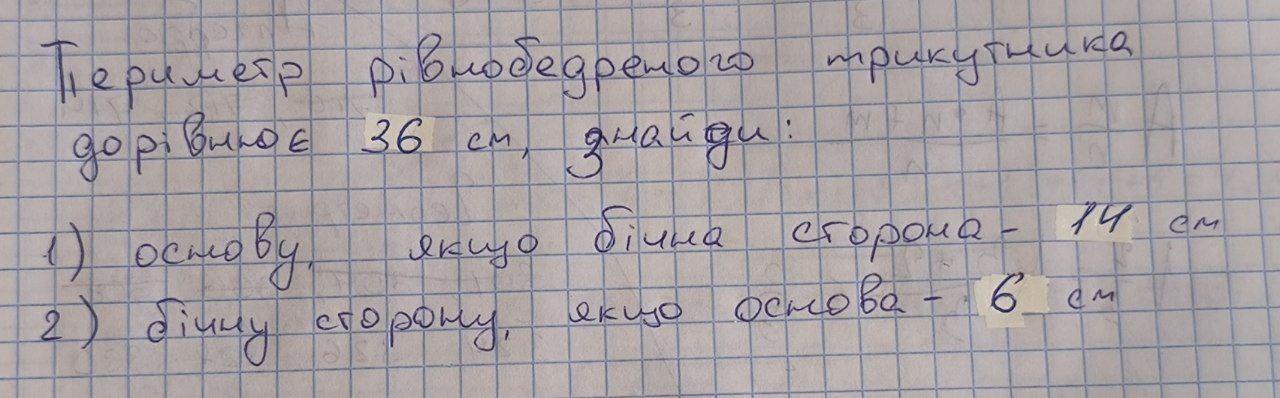 Периметр рівнобедреного трикутника
дорівнює 36 см, знайди:
1) основу, якщо бічна сторона - 14 см
2) бічну сторону, якщо основа - 6 см